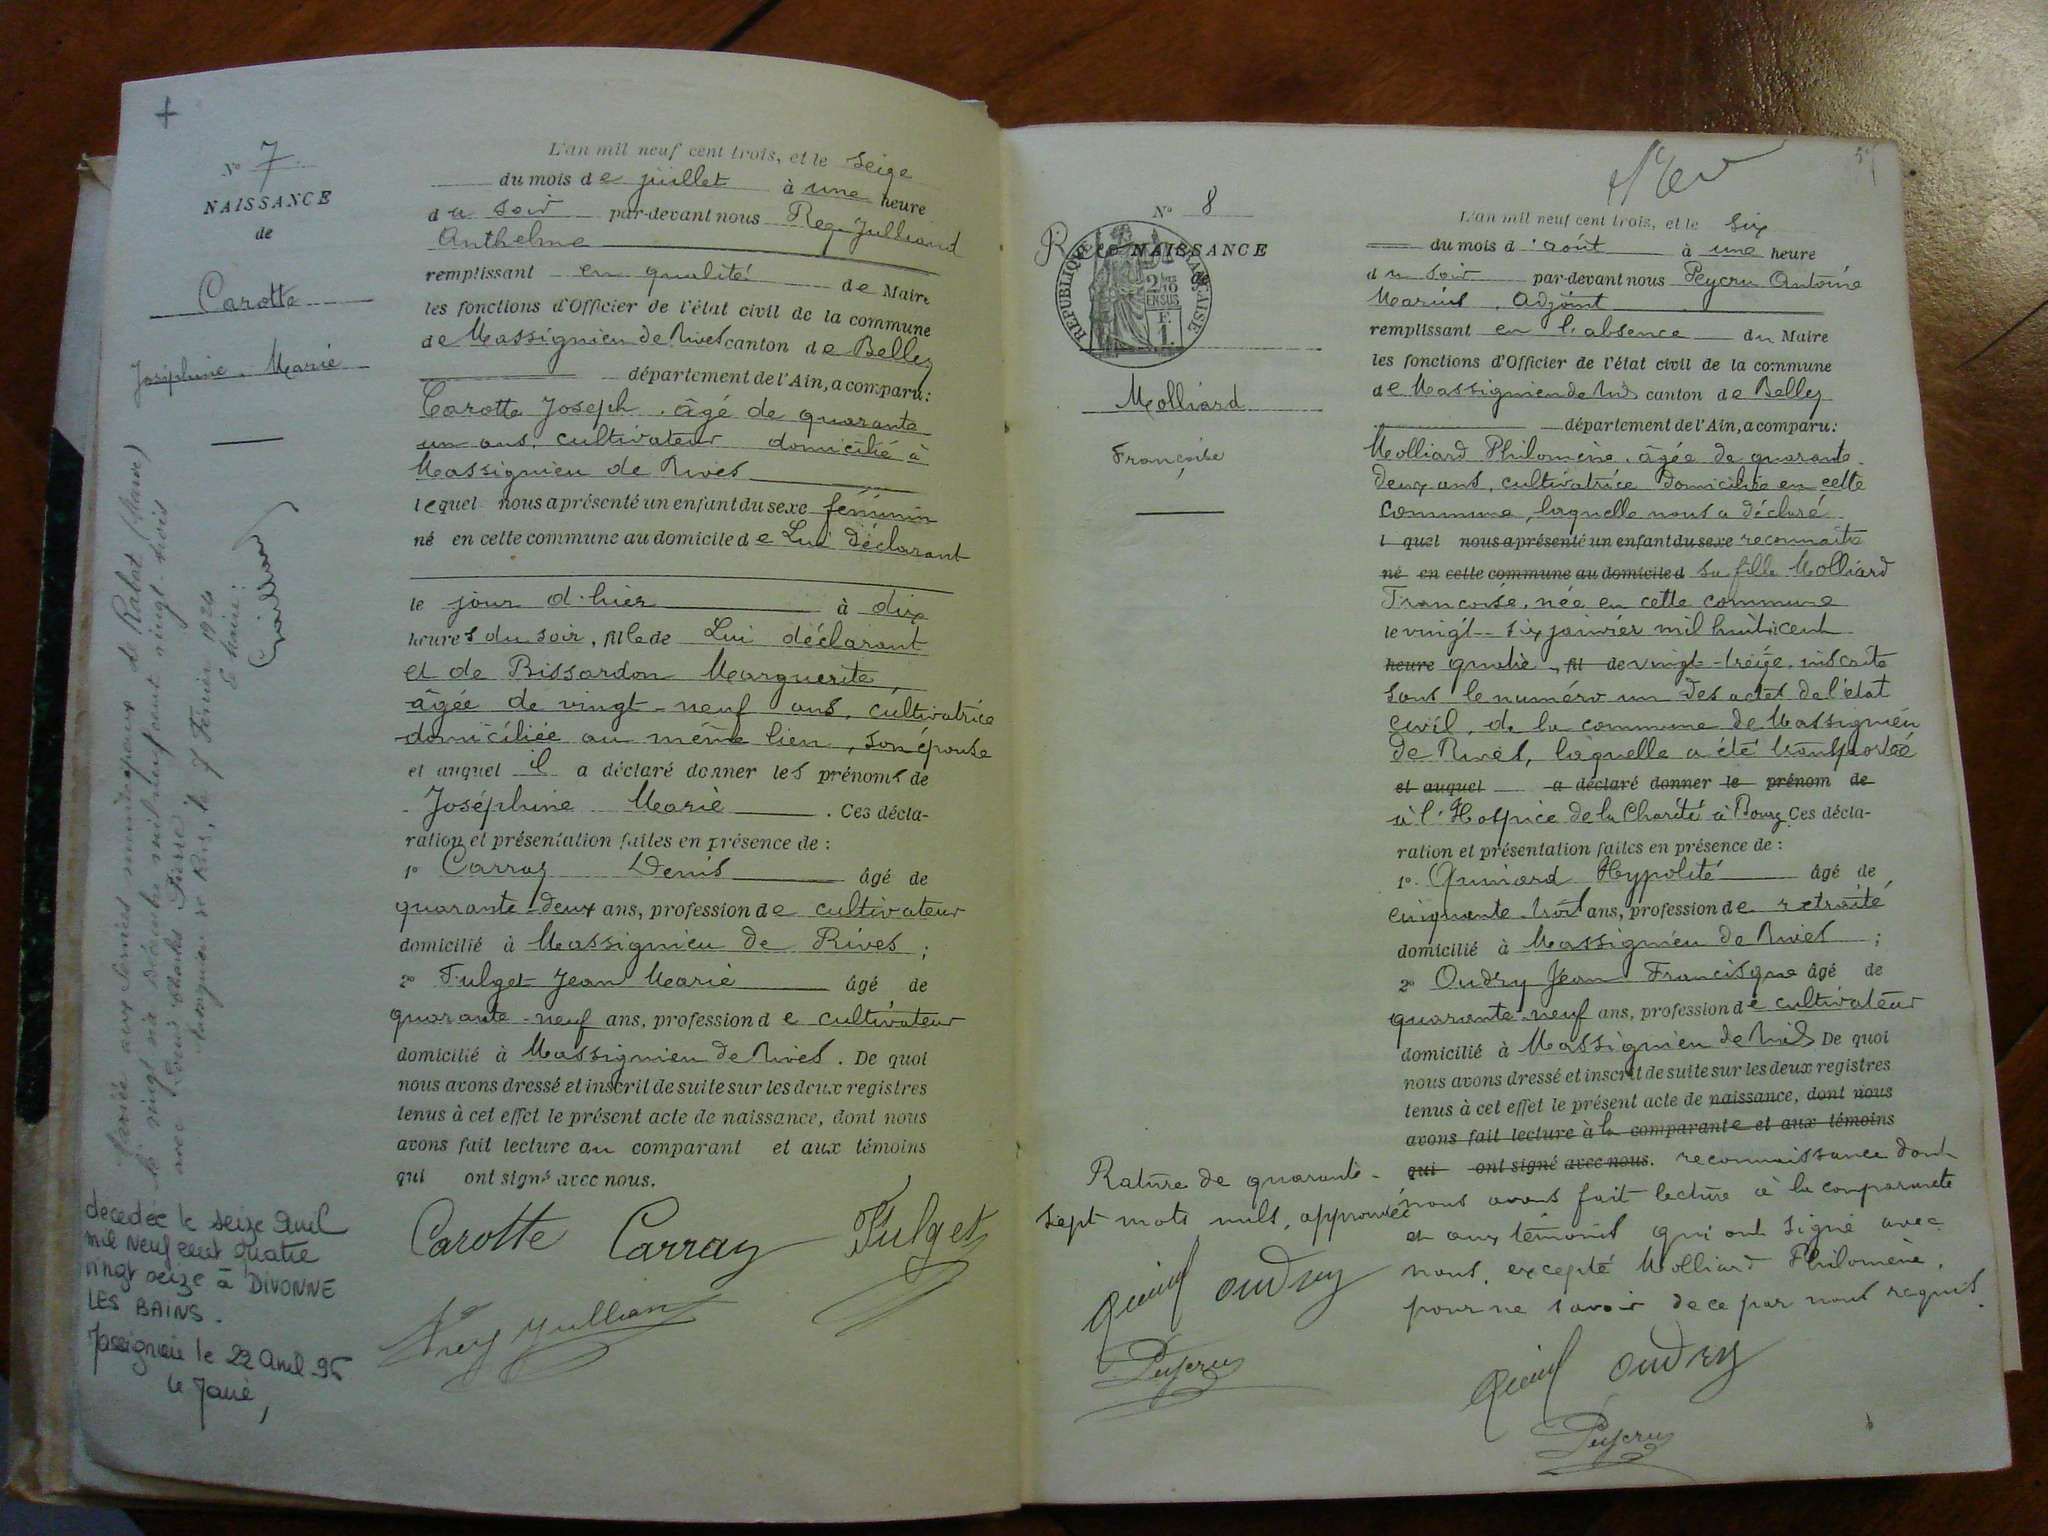 +
N° 7
NAISSANCE
de
Carotte
Joséphine Marie
L'an mil neuf cent trois, et le seize
du mois de juillet à une heure
du soir par-devant nous Rey-Julliand
Anthelme
remplissant en qualité de Maire
les fonctions d'Officier de l'état civil de la commune
de Massignieu de Rives canton de Belley
département de l'Ain, a comparu:
Carotte Joseph, âgé de quarante
un ans, cultivateur domicilié à
Massignieu de Rives
lequel nous a présenté un enfant du sexe féminin
né en cette commune au domicile de Lui déclarant
le jour d'hier à dix
heures du soir, fille de Lui déclarant
et de Bissardon Marguerite,
âgée de vingt-neuf ans, cultivatrice
domiciliée au même lieu, son épouse
et auquel il a déclaré donner les prénoms de
Joséphine Marie. Ces décla-
ration et présentation faites en présence de :
1° Carraz Denis âgé de
quarante-deux ans, profession de cultivateur
domicilié à Massignieu de Rives ;
2° Fulget Jean Marie âgé de
quarante-neuf ans, profession de cultivateur
domicilié à Massignieu de Rives. De quoi
nous avons dressé et inscrit de suite sur les deux registres
tenus à cet effet le présent acte de naissance, dont nous
avons fait lecture au comparant et aux témoins
qui ont signé avec nous.
Carotte Carraz Fulget
Rey Julliand
Mariée aux Services municipaux de Rabat (Maroc)
le vingt six décembre mil neuf cent vingt-trois
avec Charles Pierre
Massignieu de Rives, le 7 Février 1924
Le Maire :
décédée le seize Avril
mil neuf cent quatre
vingt seize à DIVONNE
LES BAINS.
Massignieu le 22 Avril 96
le Maire,
N° 8
Rece NAISSANCE
de
RÉPUBLIQUE FRANÇAISE
2/10
EN SUS
F.
1.
Molliard
Françoise
L'an mil neuf cent trois, et le six
du mois d'août à une heure
du soir par-devant nous Peycru Antoine
Marius, Adjoint
remplissant en l'absence du Maire
les fonctions d'Officier de l'état civil de la commune
de Massignieu de Rives canton de Belley
département de l'Ain, a comparu:
Molliard Philomène, âgée de quarante
deux ans, cultivatrice domiciliée en cette
commune, laquelle nous a déclaré
l quel nous a présenté un enfant du sexe reconnaitre
né en cette commune au domicile d sa fille Molliard
Françoise, née en cette commune
le vingt-six janvier mil huit cent
heure quatre, fil de vingt-treize, inscrite
sous le numéro un des actes de l'état
civil, de la commune de Massignieu
de Rives, laquelle a été transportée
et auquel a déclaré donner le prénom de
à l'Hospice de la Charité à Bourg Ces décla-
ration et présentation faites en présence de :
1° Hypolite âgé de
cinquante-trois ans, profession de retraité
domicilié à Massignieu de Rives ;
2° Oudry Jean Francisque âgé de
quarante-neuf ans, profession de cultivateur
domicilié à Massignieu de Rives De quoi
nous avons dressé et inscrit de suite sur les deux registres
tenus à cet effet le présent acte de naissance, dont nous
avons fait lecture à la comparante et aux témoins
qui ont signé avec nous. reconnaissance dont
nous avons fait lecture à la comparante
et aux témoins qui ont signé avec
nous, excepté Molliard Philomène,
pour ne savoir de ce par nous requis.
Oudry
Peycru
Rature de quarante-
sept mots nuls, approuvée
Oudry
Peycru